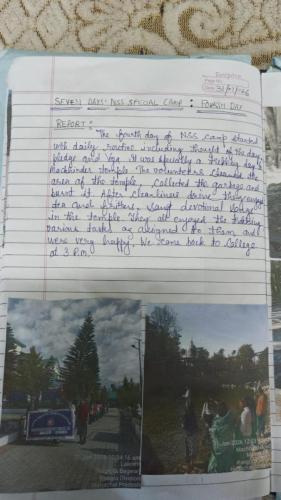 Date 31/01/26
SEVEN DAYS NSS SPECIAL CAMP : FOURTH DAY
REPORT :
The fourth day of NSS camp started
with daily routine including thought of the day,
pledge and Yoga. It was specially a trekking day to
temple. The volunteers cleaned the
area of the temple, collected the garbage and
burnt it. After cleanliness drive, they enjoyed
tea and fritters, sang devotional songs
in the temple. They all enjoyed the trekking
various tasks as assigned to them and
were very happy. We came back to College
at 3 P.M.